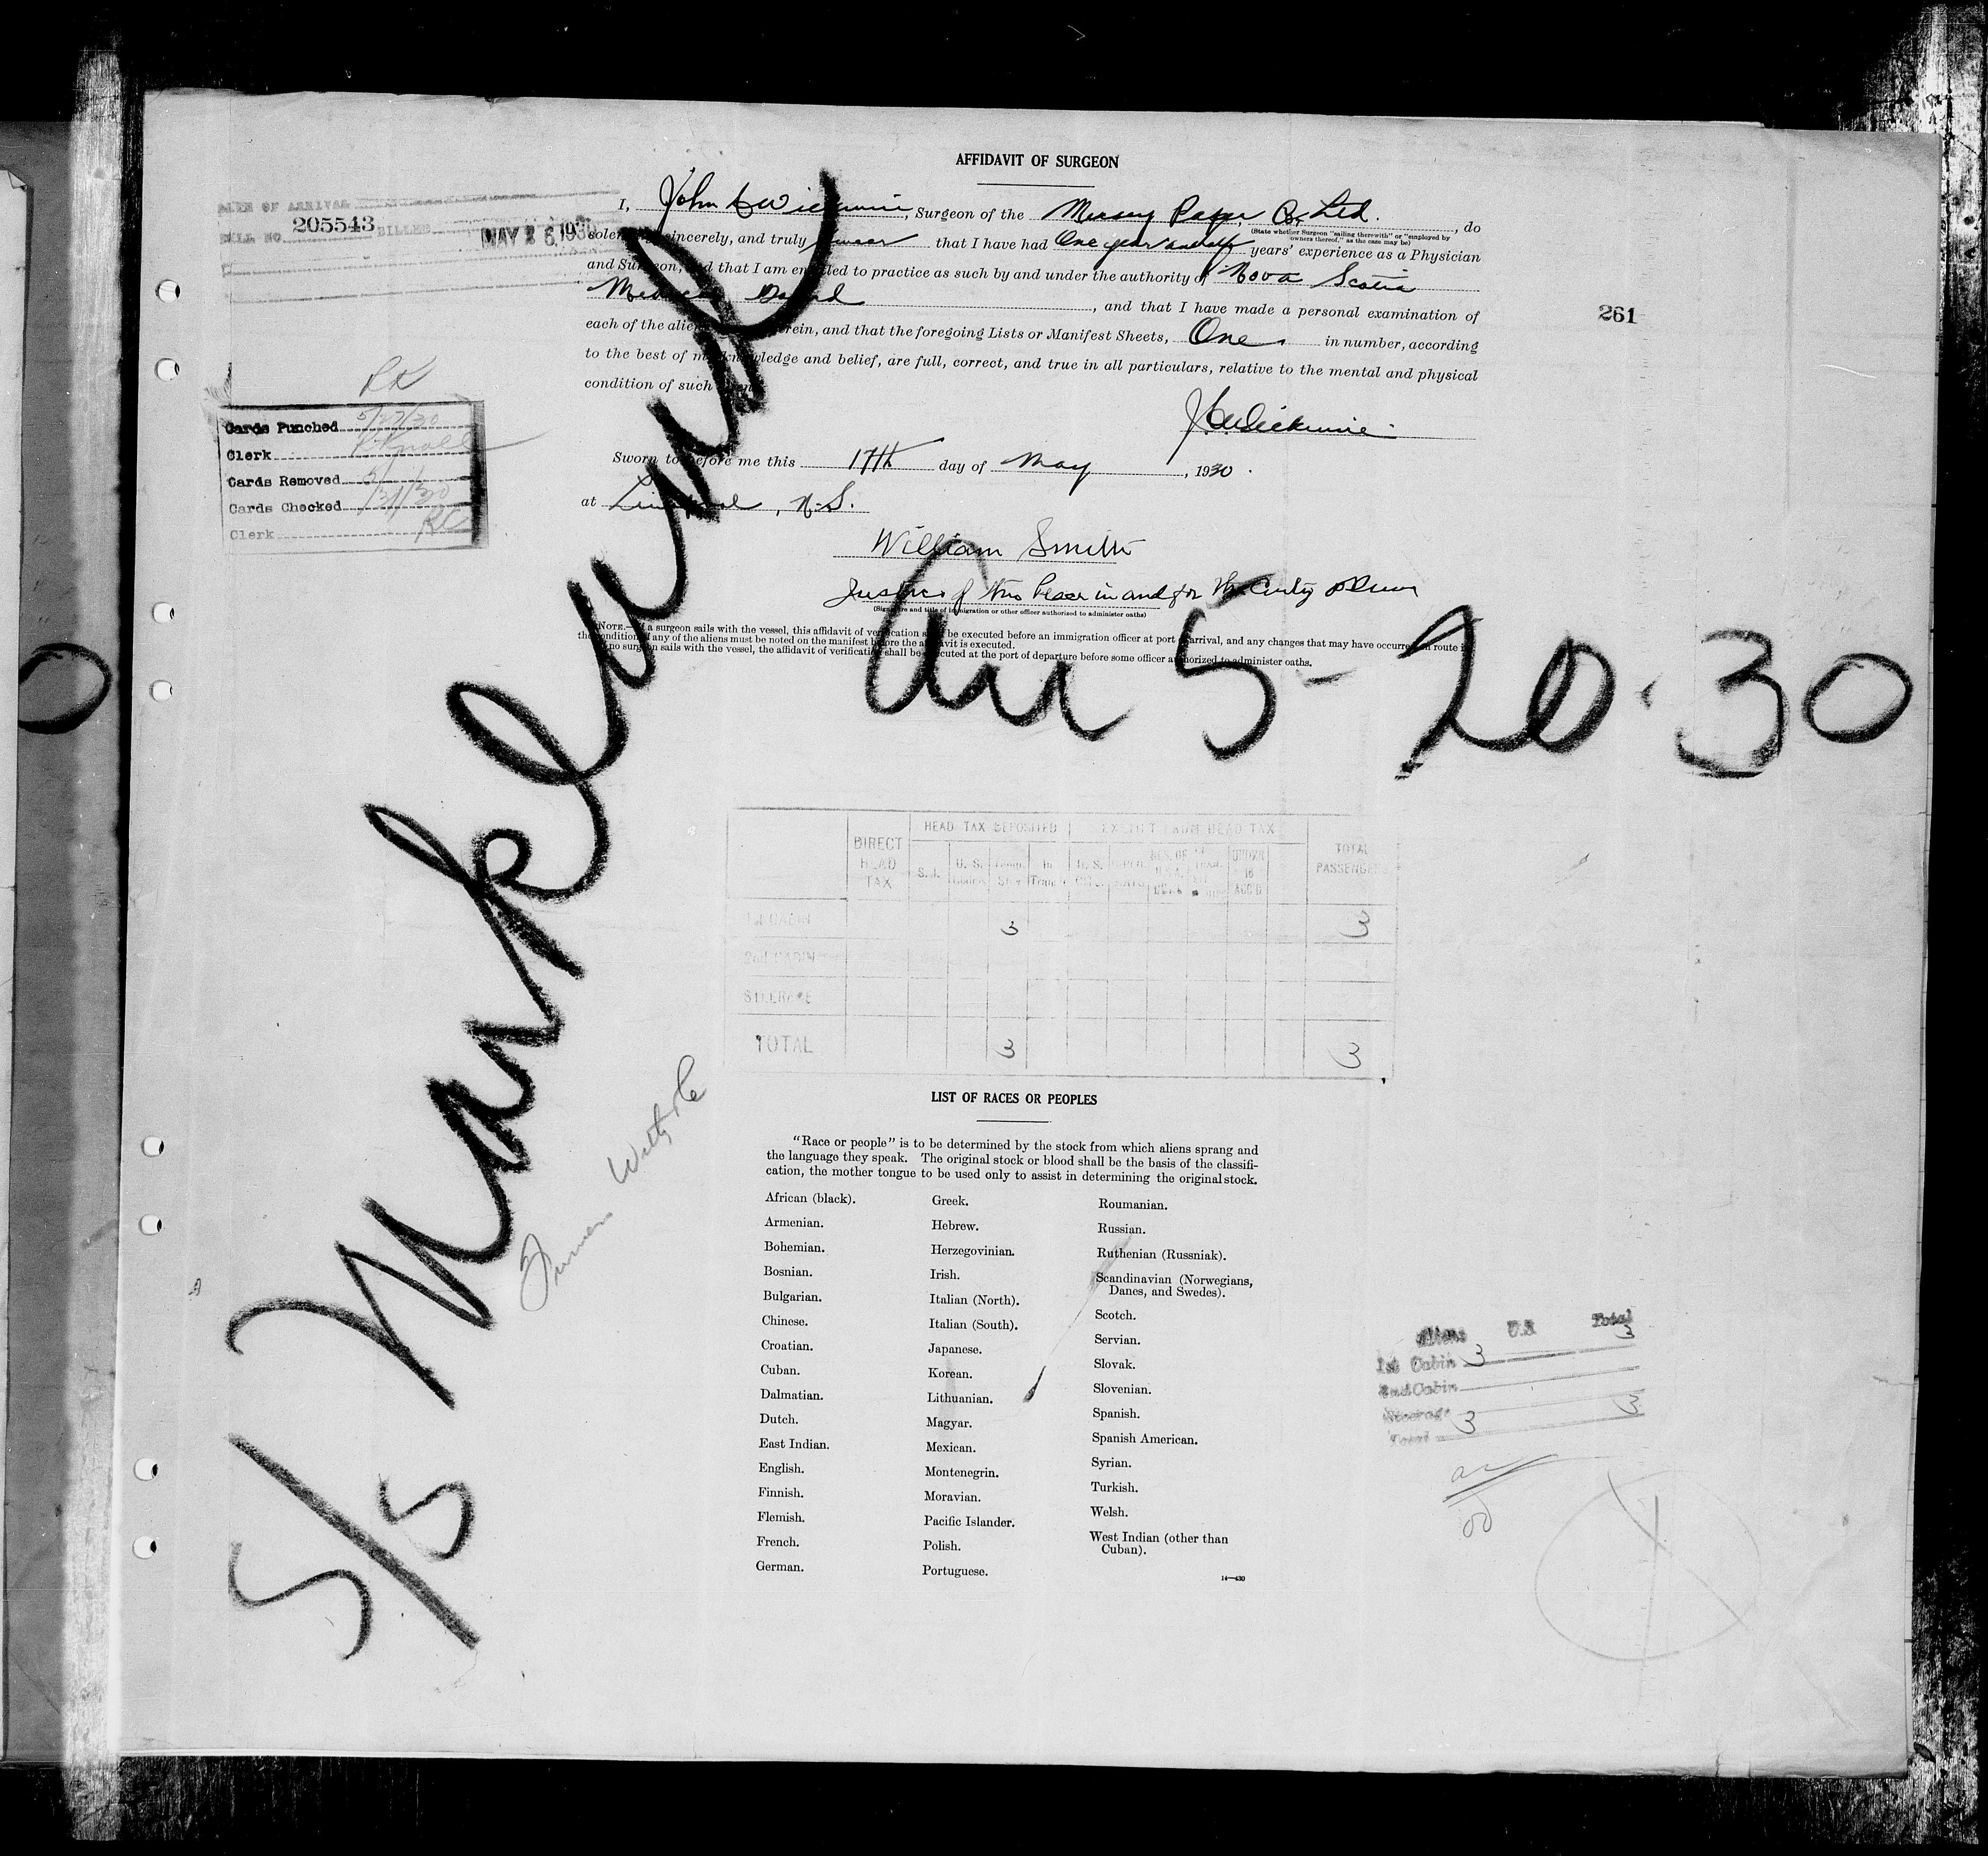 AFFIDAVIT OF SURGEON
I, John, Surgeon of the Mersey Paper Co. Ltd., do
(State whether Surgeon "sailing therewith" or "employed by
owners thereof," as the case may be)
sincerely, and truly swear that I have had One year and half years' experience as a Physician
and Surgeon, and that I am entitled to practice as such by and under the authority of Nova Scotia
Medical Board, and that I have made a personal examination of
each of the aliens herein, and that the foregoing Lists or Manifest Sheets, One in number, according
to the best of my knowledge and belief, are full, correct, and true in all particulars, relative to the mental and physical
condition of such
Sworn to before me this 17th day of May, 1930.
at Liverpool, N.S.
William Smith
Justice of the Peace in and for the
(Signature and title of immigration or other officer authorized to administer oaths)
NOTE.—If a surgeon sails with the vessel, this affidavit of verification shall be executed before an immigration officer at port of arrival, and any changes that may have occurred en route in
the condition of any of the aliens must be noted on the manifest before the affidavit is executed.
If no surgeon sails with the vessel, the affidavit of verification shall be executed at the port of departure before some officer authorized to administer oaths.
OF ARRIVAL
BILL NO 205543 BILLED MAY 26 1930
261
RK
Cards Punched 5/27/30
Clerk
Cards Removed
Cards Checked 5/31/30
Clerk RC
S/S Markland
Arr 5-20-30
DIRECT HEAD TAX
HEAD TAX DEPOSITED
EXEMPT FROM HEAD TAX
TOTAL PASSENGERS
S.I.
U. S.
In Transit
UNDER 16 ACC'D
1st CABIN 3 3
2nd CABIN
STEERAGE
TOTAL 3 3
LIST OF RACES OR PEOPLES
"Race or people" is to be determined by the stock from which aliens sprang and
the language they speak. The original stock or blood shall be the basis of the classifi-
cation, the mother tongue to be used only to assist in determining the original stock.
African (black).
Armenian.
Bohemian.
Bosnian.
Bulgarian.
Chinese.
Croatian.
Cuban.
Dalmatian.
Dutch.
East Indian.
English.
Finnish.
Flemish.
French.
German.
Greek.
Hebrew.
Herzegovinian.
Irish.
Italian (North).
Italian (South).
Japanese.
Korean.
Lithuanian.
Magyar.
Mexican.
Montenegrin.
Moravian.
Pacific Islander.
Polish.
Portuguese.
Roumanian.
Russian.
Ruthenian (Russniak).
Scandinavian (Norwegians,
Danes, and Swedes).
Scotch.
Servian.
Slovak.
Slovenian.
Spanish.
Spanish American.
Syrian.
Turkish.
Welsh.
West Indian (other than
Cuban).
14—430
Aliens U.S. Total
1st Cabin 3 3
2nd Cabin
Steerage
Total 3 3